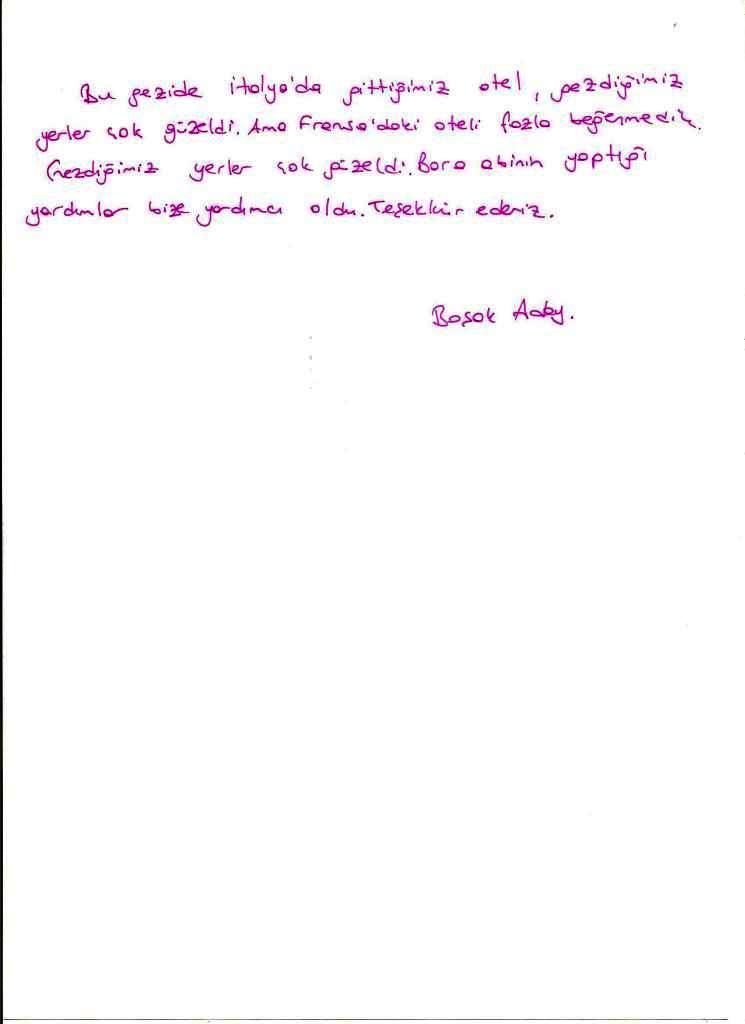 Bu gezide italya'da gittiğimiz otel, gezdiğimiz
yerler çok güzeldi. Ama Fransa'daki oteli fazla beğenmedik.
Gezdiğimiz yerler çok güzeldi. Bora abinin yaptığı
yardımlar bize yardımcı oldu. Teşekkür ederiz.
Başak